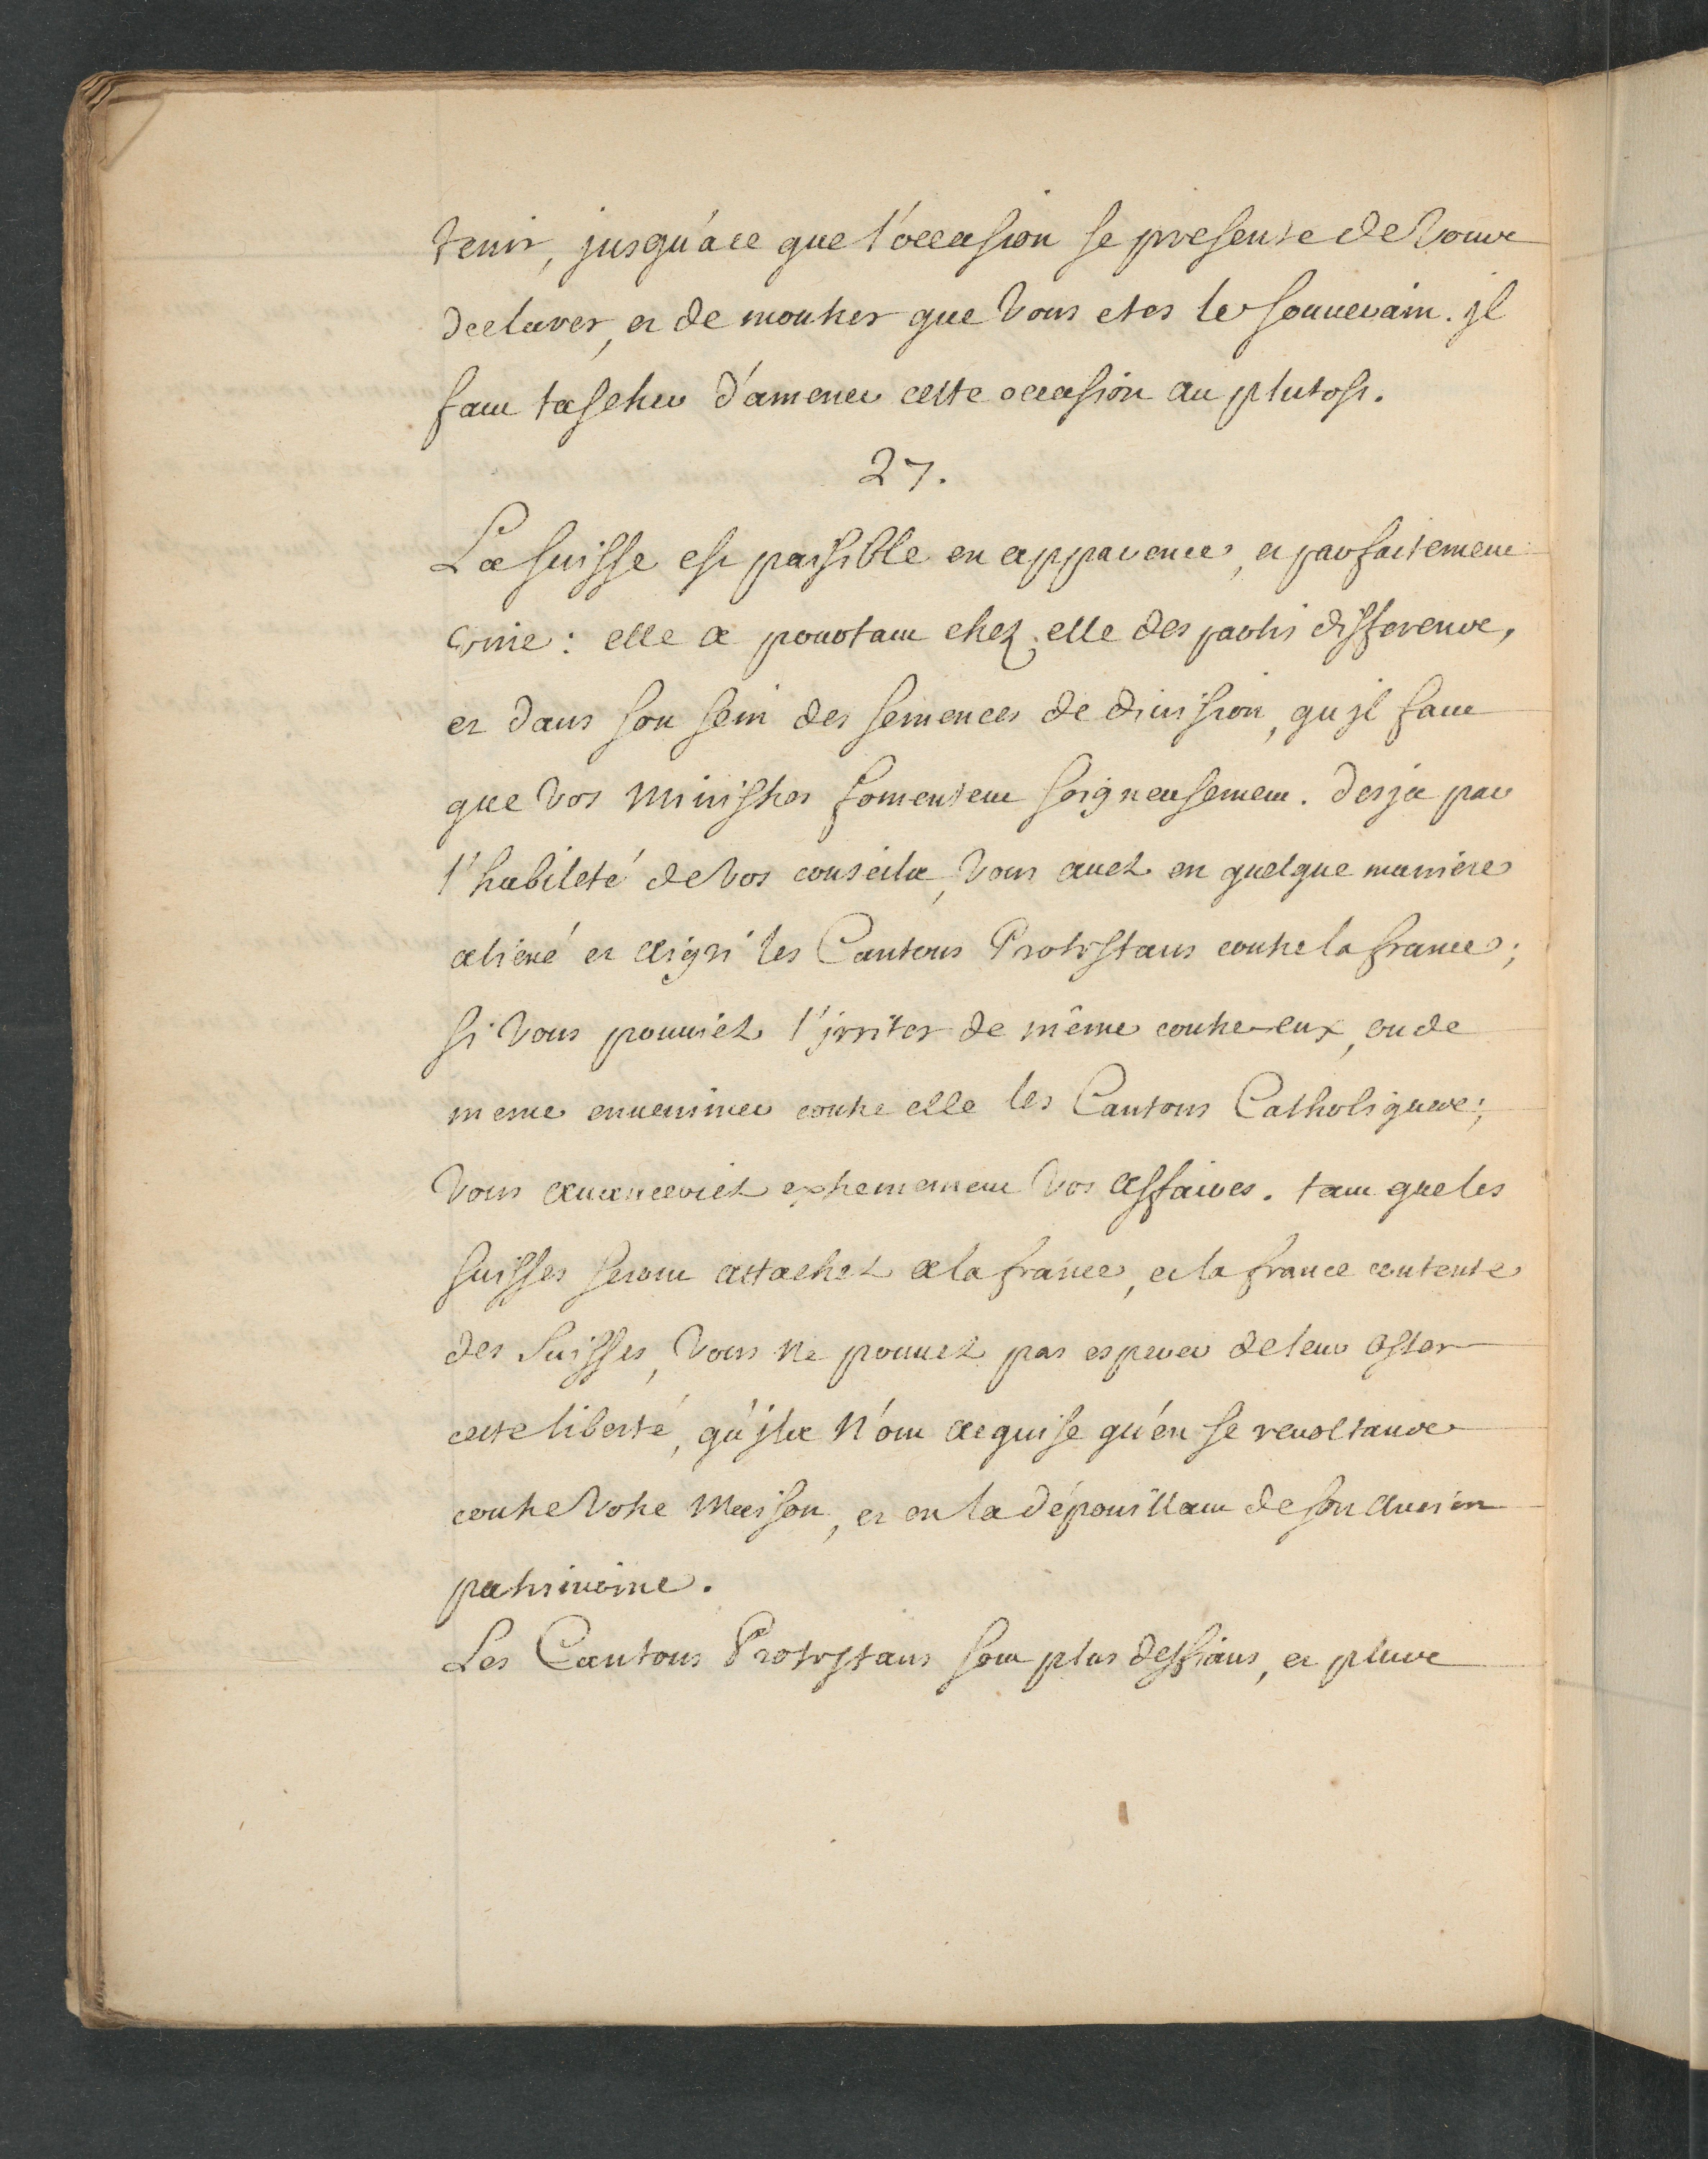 tenir, jusqu'à ce que l'occasion se presente de vous
declarer, et de montrer que vous etes le souuerain. jl
faut tascher d'amener cette occasion au plutost.
27.
La suisse est paisible en apparence, et parfaitement
vnie: elle a pourtant chez elle des partis differents,
et dans son sein des semences de diuision, qu'jl faut
que vos ministres fomentent soigneusement. desja par
l'habileté de vos conseils, vous auez en quelque maniere
aliené et aigri les Cantons Protestans contre la france;
si vous pouuiez l'jrriter de même contre eux, ou de
meme enuenimer contre elle les Cantons Catholiques;
vous auanceriez extremement vos affaires. tant que les
suisses seront attachez a la france, et la france contente
des Suisses, vous ne pouuez pas esperer de leur oster
cette liberté, qu'jls n'ont acquise qu'en se reuoltants
contre votre maison, et en la dépouillant de son ancien
patrimoine.
Les Cantons Protestans sont plus deffians, et plus